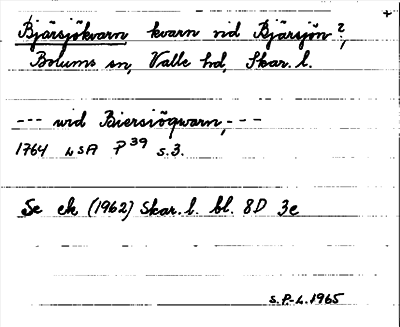 +
Bjärsjökvarn kvarn vid Bjärsjön?,
Bolums sn, Valle hd, Skar. l.
--- wid Biersiöqwarn, ---
1764 LSA P 39 s. 3.
Se ek (1962) Skar. l. bl. 8D 3e
S.P-L. 1965